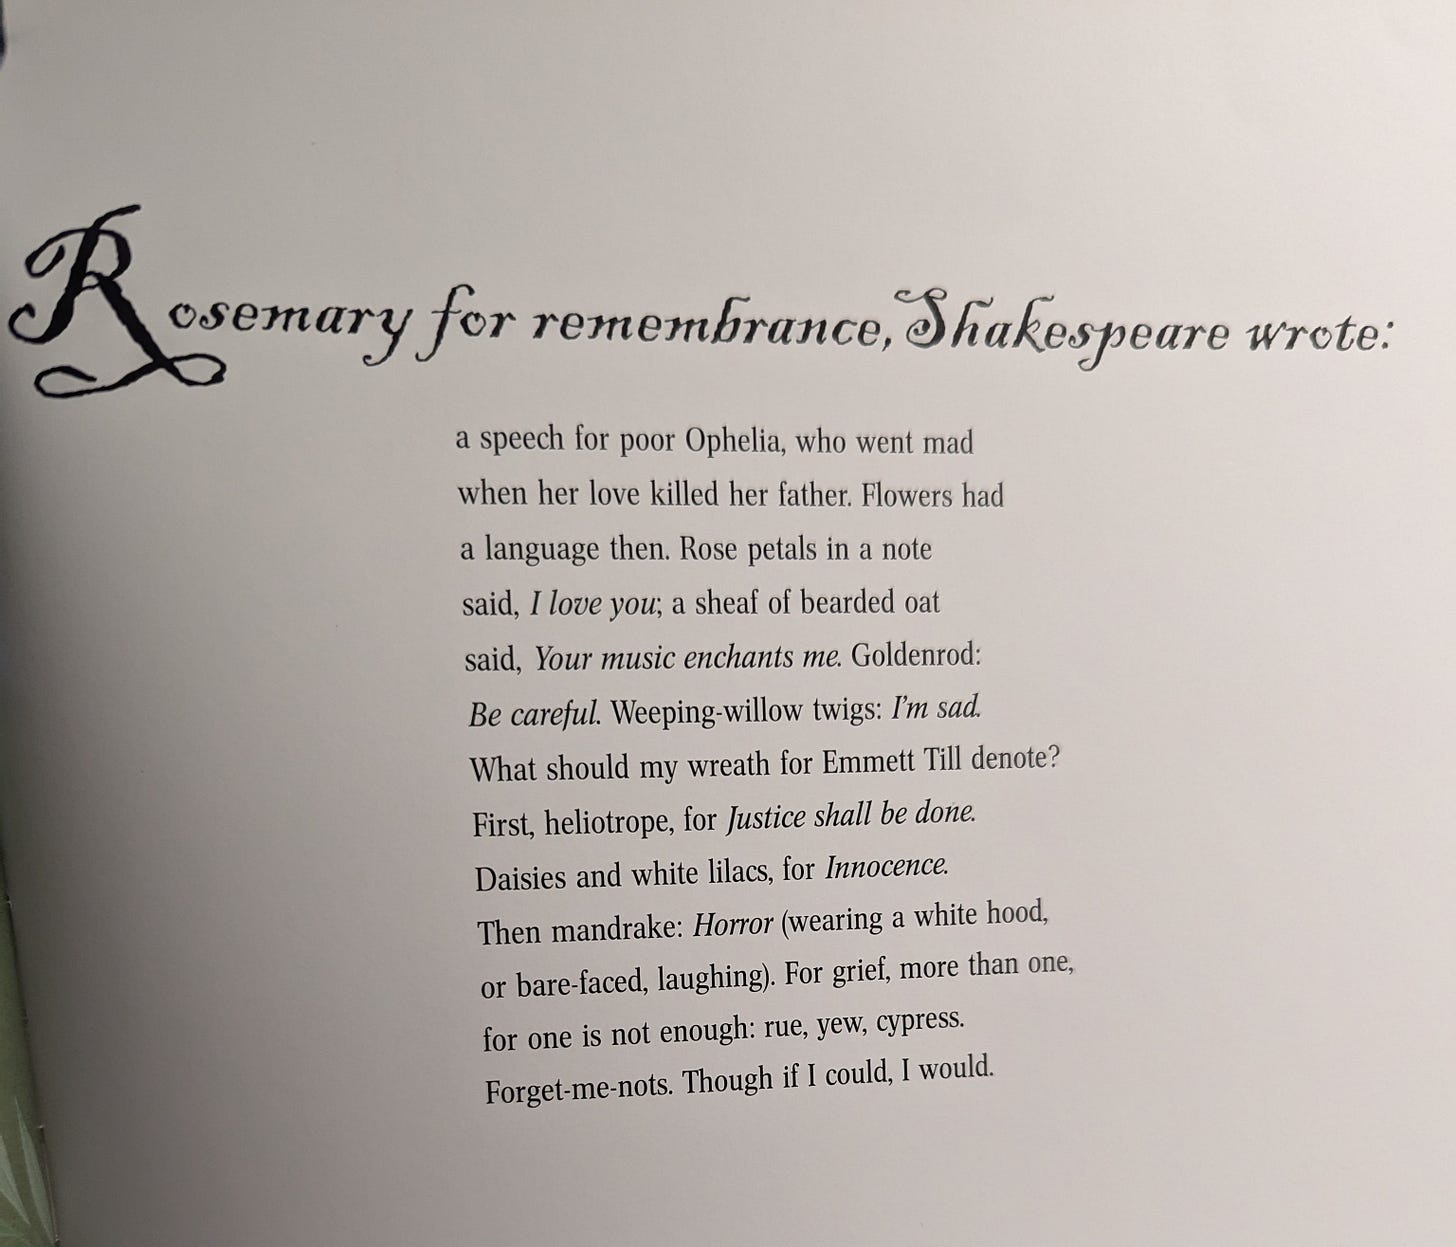 Rosemary for remembrance, Shakespeare wrote:
a speech for poor Ophelia, who went mad
when her love killed her father. Flowers had
a language then. Rose petals in a note
said, I love you; a sheaf of bearded oat
said, Your music enchants me. Goldenrod:
Be careful. Weeping-willow twigs: I'm sad.
What should my wreath for Emmett Till denote?
First, heliotrope, for Justice shall be done.
Daisies and white lilacs, for Innocence.
Then mandrake: Horror (wearing a white hood,
or bare-faced, laughing). For grief, more than one,
for one is not enough: rue, yew, cypress.
Forget-me-nots. Though if I could, I would.